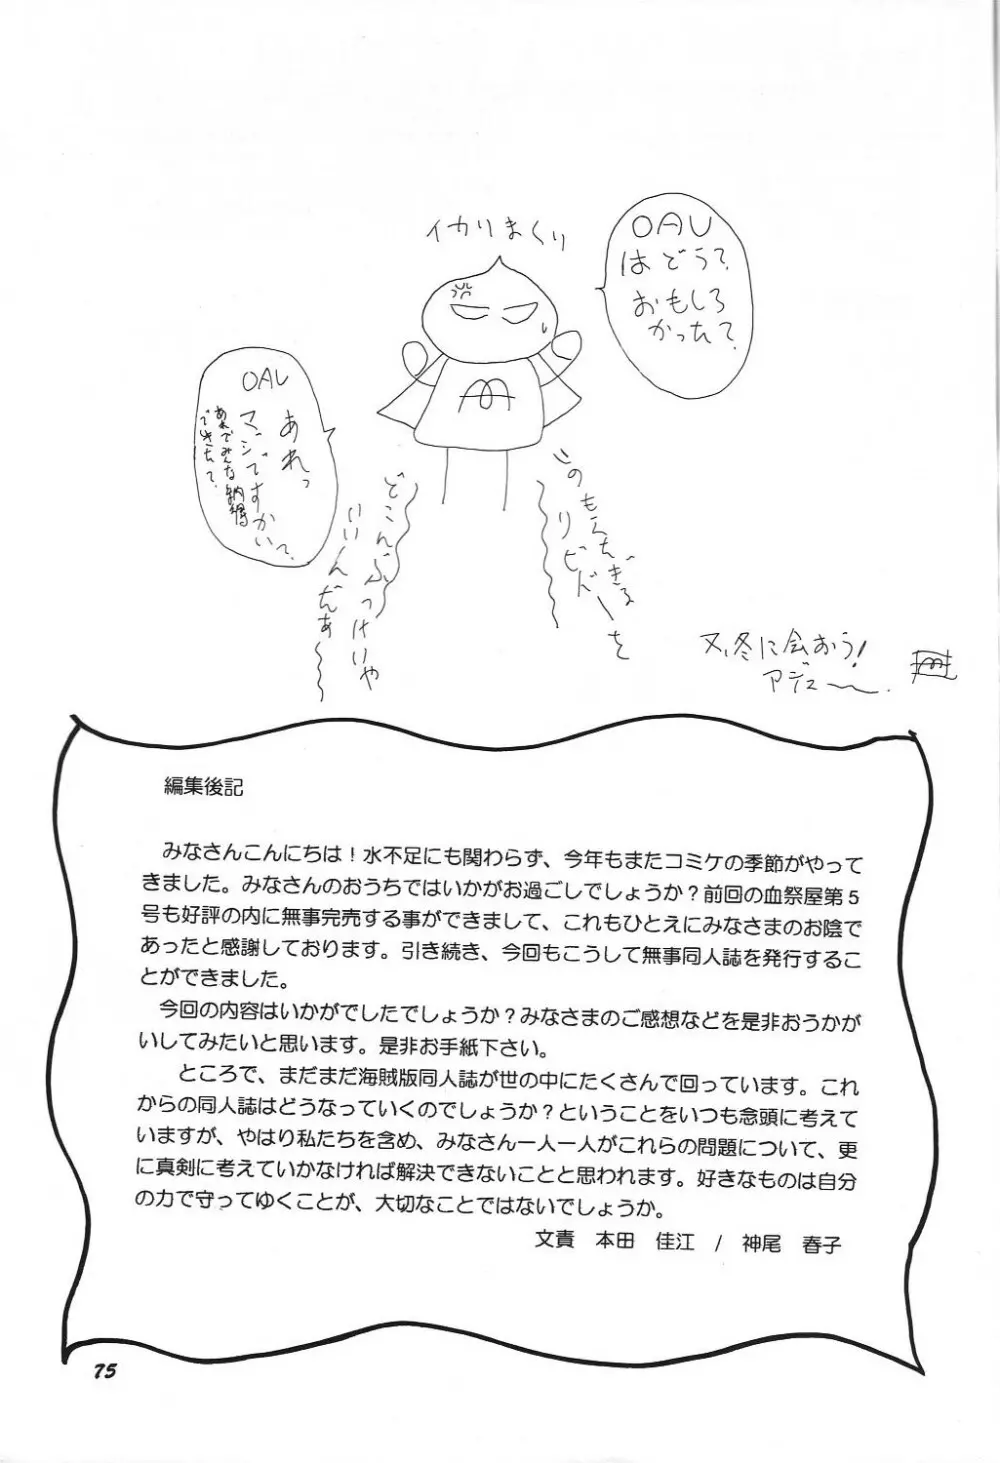 イカリまくり
OAV
はどう?
おもしろ
かった?
OAV
あれっ
マジですかい?
あれでみんな納得
できた?
このもえたぎる
リビドーを
どこんぶつけいや
いいんだぁ〜
又、冬に会おう!
アジュー〜.
編集後記
みなさんこんにちは!水不足にも関わらず、今年もまたコミケの季節がやって
きました。みなさんのおうちではいかがお過ごしでしょうか?前回の血祭屋第5
号も好評の内に無事完売する事ができまして、これもひとえにみなさまのお陰で
あったと感謝しております。引き続き、今回もこうして無事同人誌を発行するこ
とができました。
今回の内容はいかがでしたでしょうか?みなさまのご感想などを是非おうかが
いしてみたいと思います。是非お手紙下さい。
ところで、まだまだ海賊版同人誌が世の中にたくさんで回っています。これ
からの同人誌はどうなっていくのでしょうか?ということをいつも念頭に考えて
いますが、やはり私たちを含め、みなさん一人一人がこれらの問題について、更
に真剣に考えていかなければ解決できないことと思われます。好きなものは自分
の力で守ってゆくことが、大切なことではないでしょうか。
文責 本田 佳江 / 神尾 春子
75